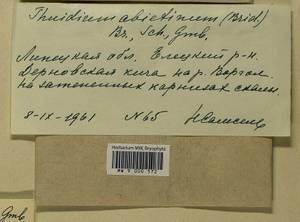 Thuidium abietinum (Brid.)
Br., Sch., Gmb.
Липецкая обл. Елецкий р-н.
на р. Воргол.
на затененных карнизах скалы.
8-IX-1961 N 65
Herbarium MW, Bryophyta
Gmb